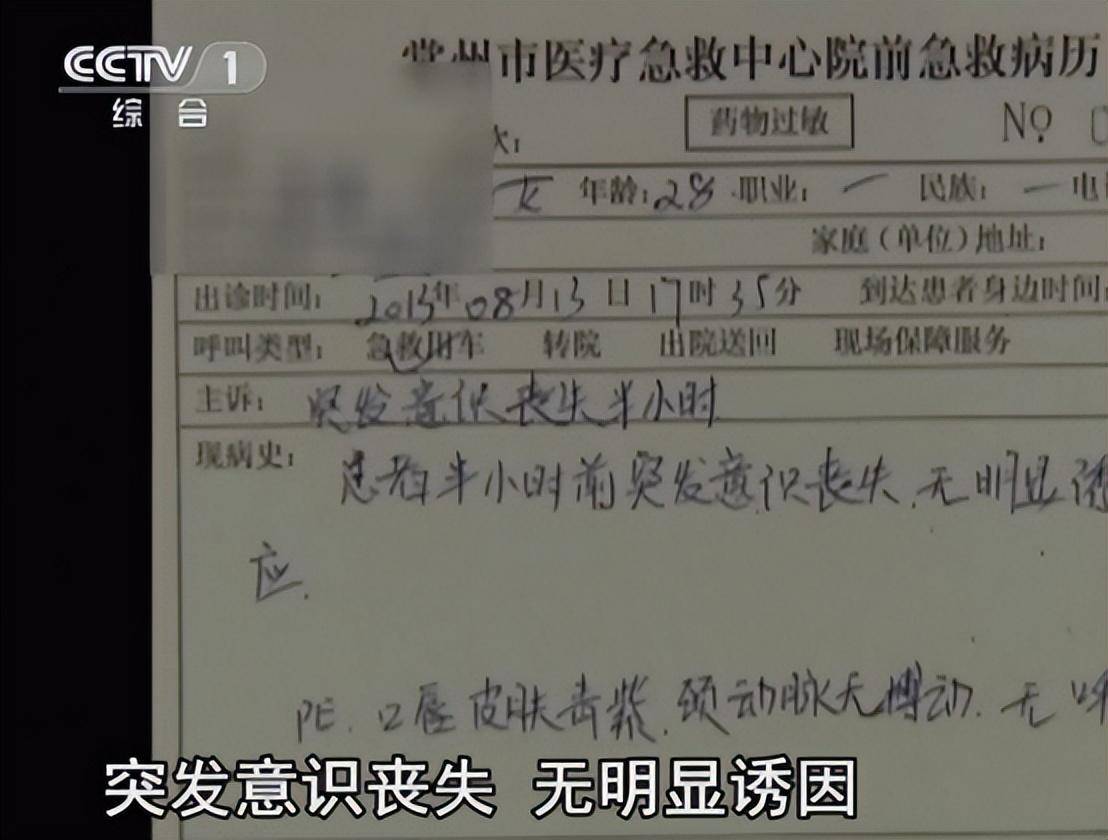 CCTV 1
综合
常州市医疗急救中心院前急救病历
药物过敏 Nº
女 年龄:28 职业:一 民族:一 电
家庭(单位)地址:
出诊时间:2013年08月13日17时35分 到达患者身边时间:
呼叫类型:急救用车 转院 出院送回 现场保障服务
主诉:突发意识丧失半小时
现病史:患者半小时前突发意识丧失,无明显诱
应.
PE.口唇皮肤青紫,颈动脉无搏动.无呼
突发意识丧失 无明显诱因